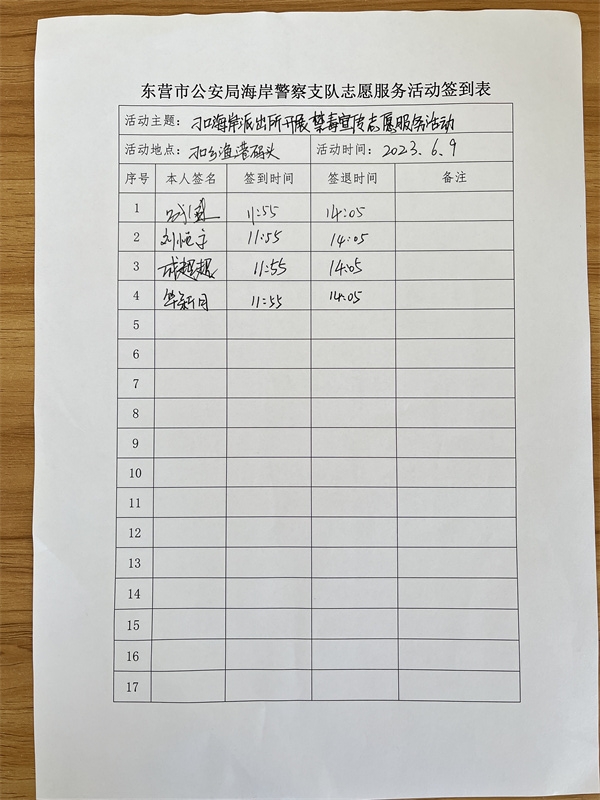 东营市公安局海岸警察支队志愿服务活动签到表
活动主题： 刁口海岸派出所开展禁毒宣传志愿服务活动
活动地点： 刁口乡渔港码头 活动时间： 2023.6.9
序号 本人签名 签到时间 签退时间 备注
1 11:55 14:05
2 11:55 14:05
3 11:55 14:05
4 11:55 14:05
5
6
7
8
9
10
11
12
13
14
15
16
17